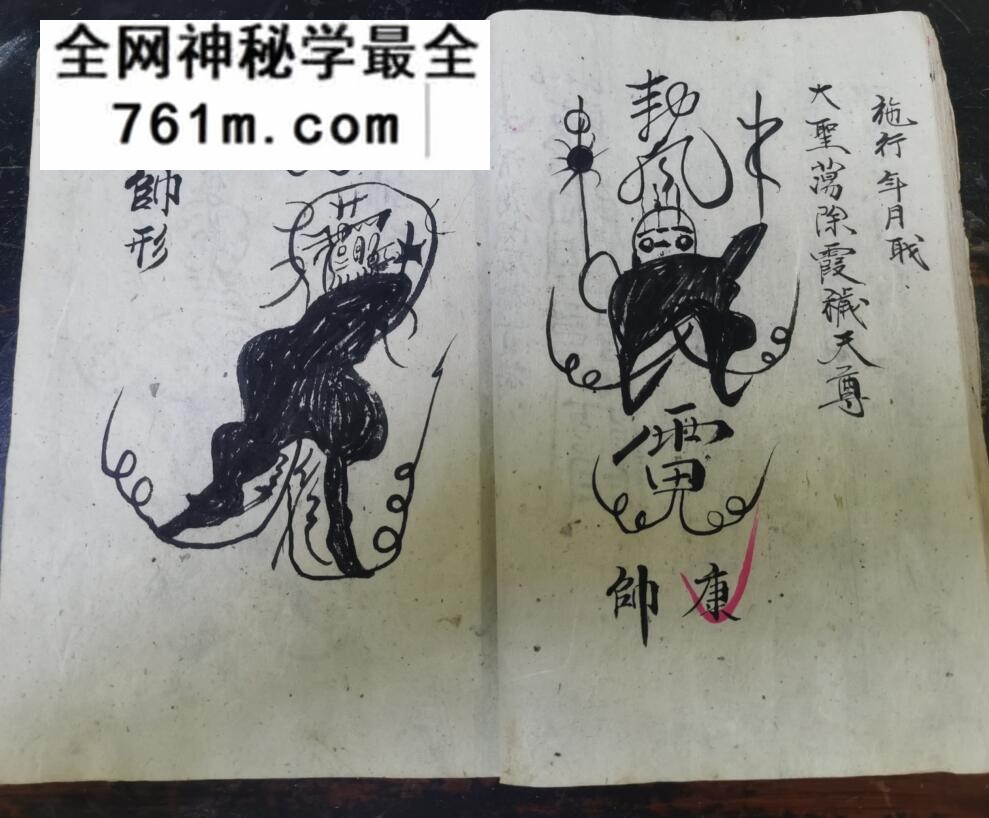 全网神秘学最全
761m.com
施行年月戝
大聖蕩除霞穢天尊
勅
雷
康帥
帥形